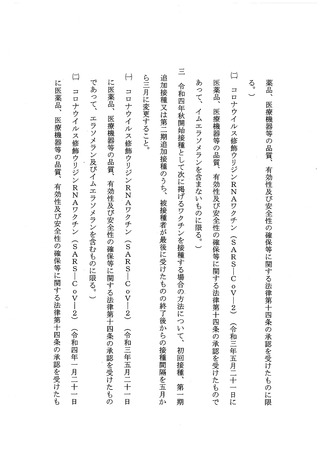 薬品、医療機器等の品質、有効性及び安全性の確保等に関する法律第十四条の承認を受けたものに限
る。)
㈡ コロナウイルス修飾ウリジンRNAワクチン(SARS―CoV―2)(令和三年五月二十一日に
医薬品、医療機器等の品質、有効性及び安全性の確保等に関する法律第十四条の承認を受けたもので
あって、イムエラソメランを含まないものに限る。)
三 令和四年秋開始接種として次に掲げるワクチンを接種する場合の方法について、初回接種、第一期
追加接種又は第二期追加接種のうち、被接種者が最後に受けたものの終了後からの接種間隔を五月か
ら三月に変更すること。
㈠ コロナウイルス修飾ウリジンRNAワクチン(SARS―CoV―2)(令和三年五月二十一日
に医薬品、医療機器等の品質、有効性及び安全性の確保等に関する法律第十四条の承認を受けたもの
であって、エラソメラン及びイムエラソメランを含むものに限る。)
㈡ コロナウイルス修飾ウリジンRNAワクチン(SARS―CoV―2)(令和四年一月二十一日
に医薬品、医療機器等の品質、有効性及び安全性の確保等に関する法律第十四条の承認を受けたも